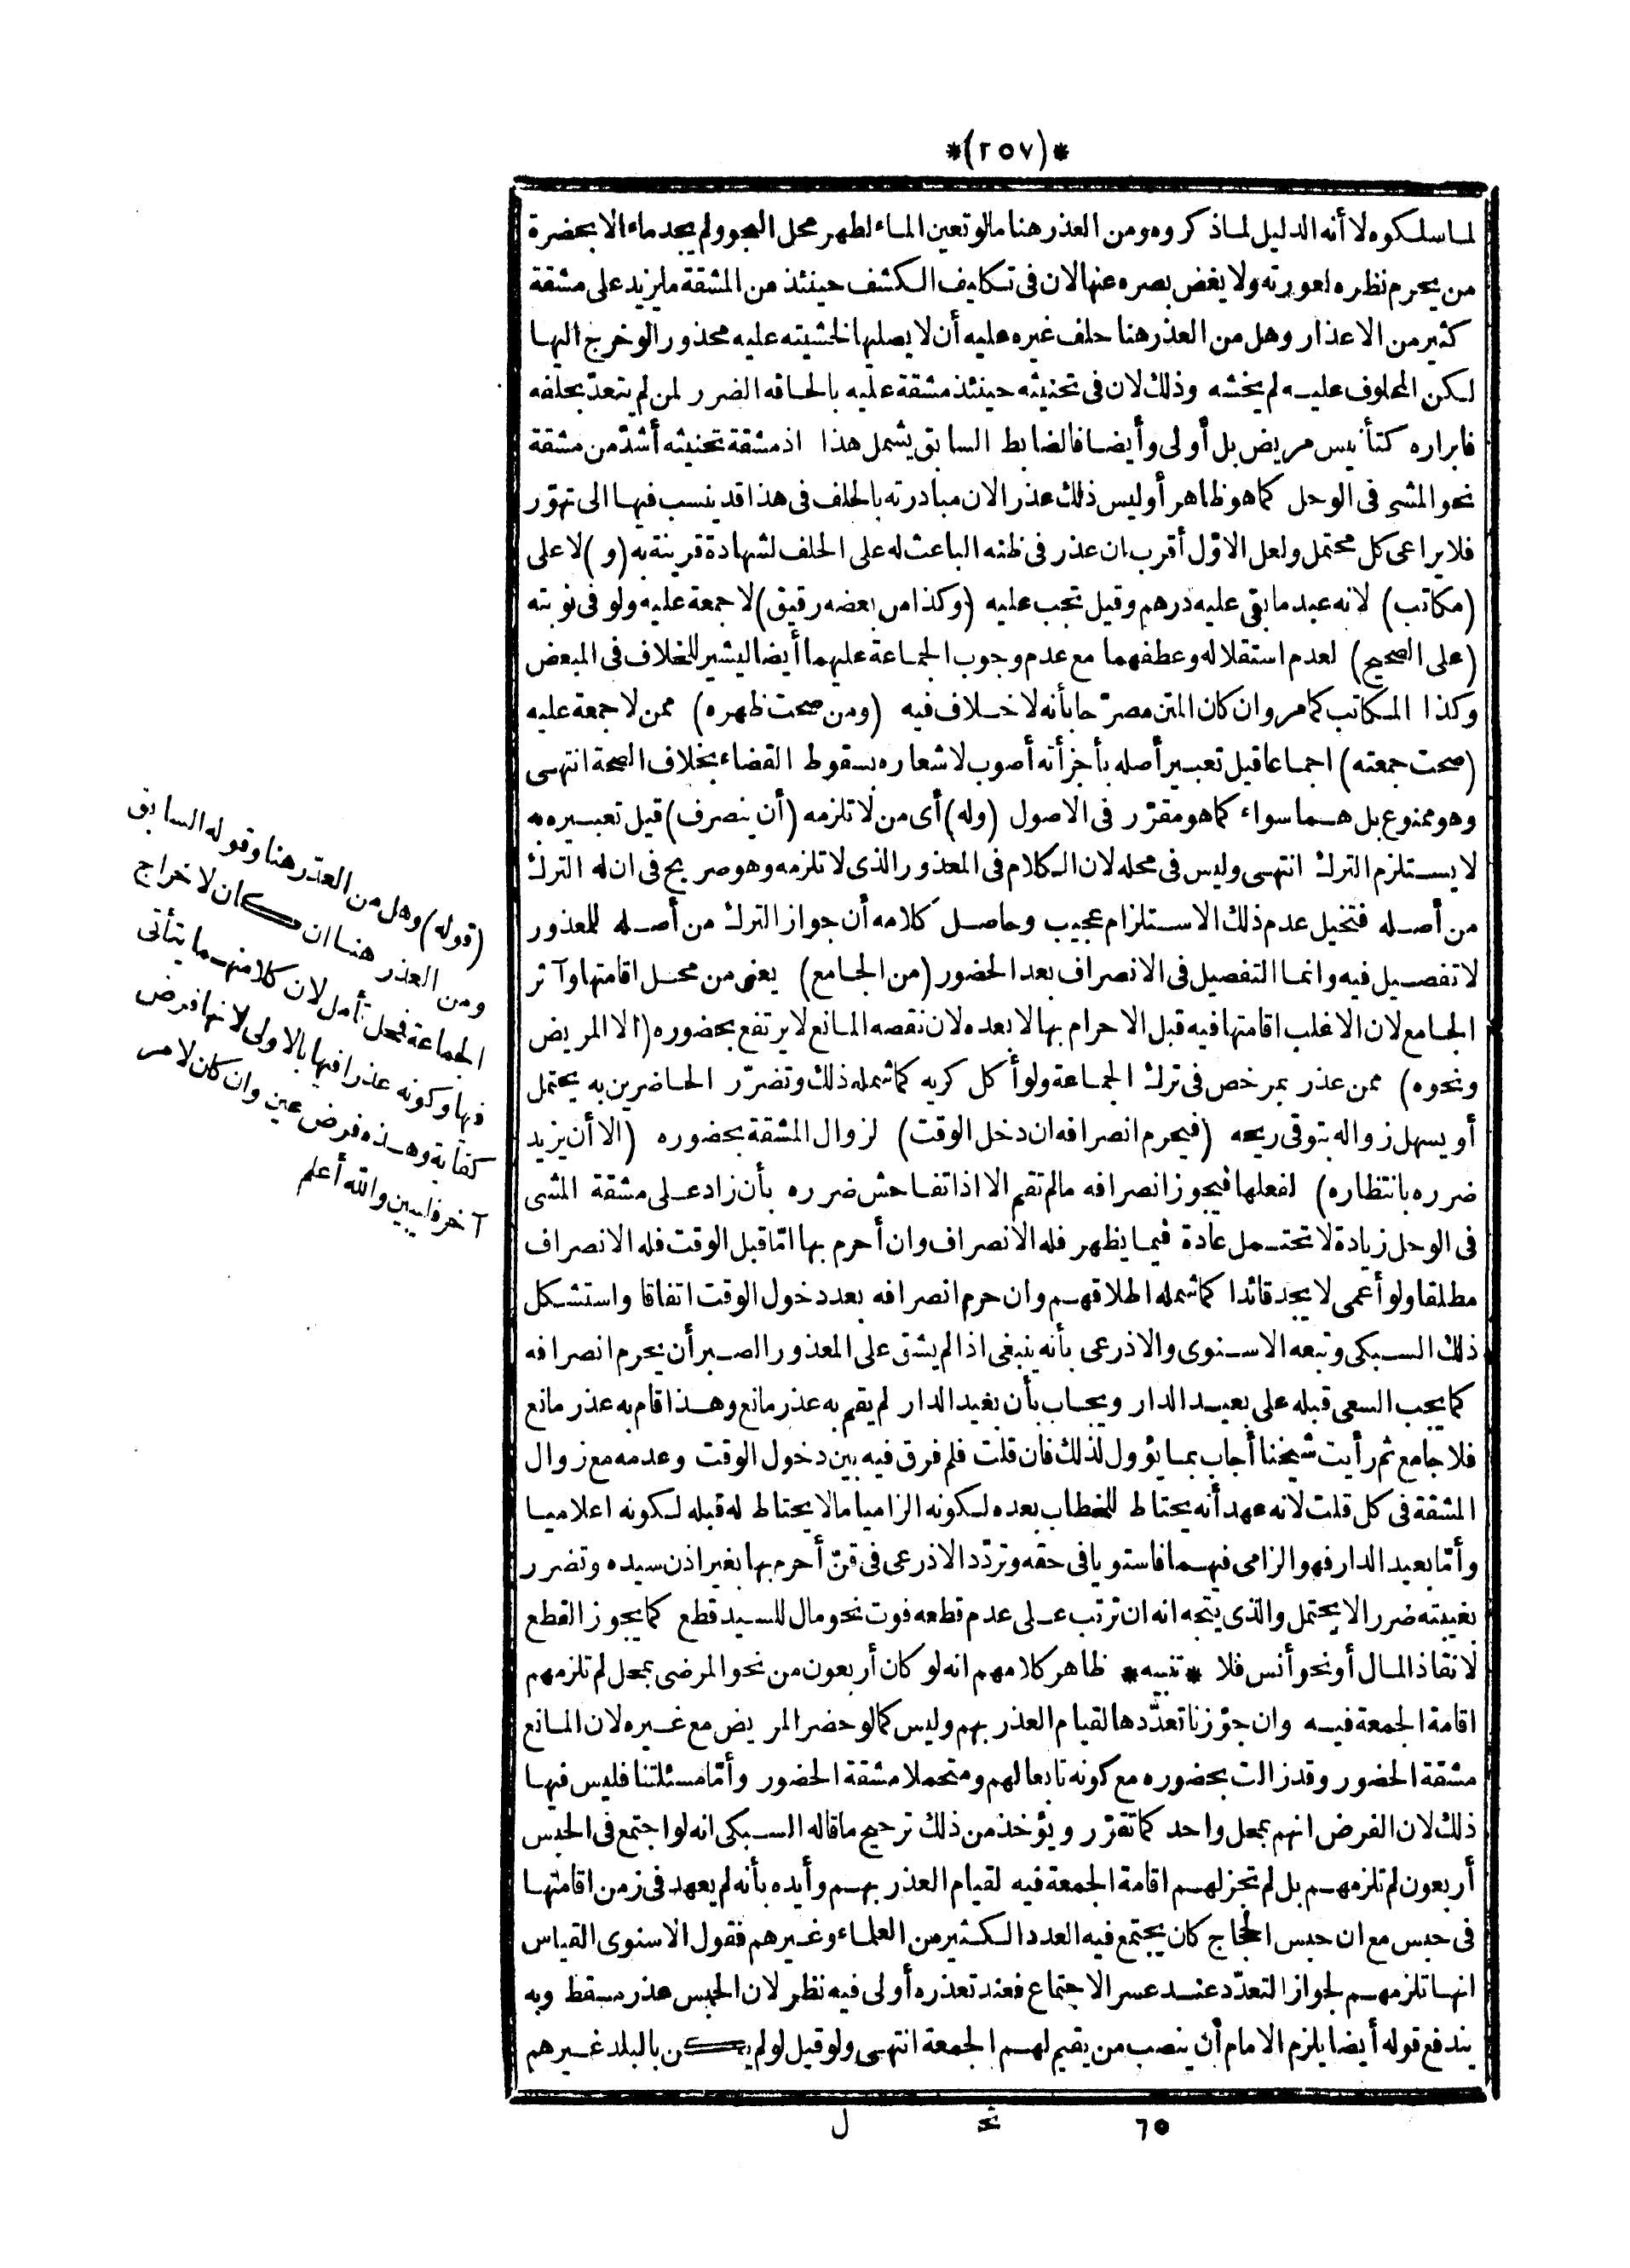 *(٢٥٧)*
لما سلكوه لا أنه الدليل لما ذكروه ومن العذر هنا ما لو تعين الماء لطهر محل النجو ولم يجد ماء الا بحضرة
من يحرم نظره لعورته ولا يغض بصره عنها لان فى تكليف الكشف حينئذ من المشقة ما يزيد على مشقة
كثير من الاعذار وهل من العذر هنا حلف غيره عليه أن لا يصليها لخشيته عليه محذورا لو خرج اليها
لكن المحلوف عليه لم يخشه وذلك لان فى تحنيثه حينئذ مشقة عليه بالحاقه الضرر لمن لم يتعد بحلفه
فابراره كتأنيس مريض بل أولى وأيضا فالضابط السابق يشمل هذا اذ مشقة تحنيثه أشدّ من مشقة
نحو المشى فى الوحل كما هو ظاهر أو ليس ذلك عذرا لان مبادرته بالحلف فى هذا قد ينسب فيها الى تهوّر
فلا يراعى كل محتمل ولعل الاوّل أقرب ان عذر فى ظنه الباعث له على الحلف لشهادة قرينة به (و) لا على
(مكاتب) لانه عبد ما بقى عليه درهم وقيل تجب عليه (وكذا من بعضه رقيق) لا جمعة عليه ولو فى نوبته
(على الصحيح) لعدم استقلاله وعطفهما مع عدم وجوب الجماعة عليهما أيضا ليشير للخلاف فى المبعض
وكذا المكاتب كما مر وان كان المتن مصرّحا بأنه لا خلاف فيه (ومن صحت ظهره) ممن لا جمعة عليه
(صحت جمعته) اجماعا قيل تعبير أصله بأجزأته أصوب لاشعاره بسقوط القضاء بخلاف الصحة انتهى
وهو ممنوع بل هما سواء كما هو مقرّر فى الاصول (وله) أى من لا تلزمه (أن ينصرف) قيل تعبيره به
لا يستلزم الترك انتهى وليس فى محله لان الكلام فى المعذور الذى لا تلزمه وهو صريح فى ان له الترك
من أصله فتخيل عدم ذلك الاستلزام عجيب وحاصل كلامه أن جواز الترك من أصله للمعذور
لا تفصيل فيه وانما التفصيل فى الانصراف بعد الحضور (من الجامع) يعنى من محل اقامتها وآثر
الجامع لان الاغلب اقامتها فيه قبل الاحرام بها لا بعده لان نقصه المانع لا يرتفع بحضوره (الا المريض
ونحوه) ممن عذر بمرخص فى ترك الجماعة ولو أكل كريه كما شمله ذلك وتضرّر الحاضرين به يحتمل
أو يسهل زواله بتوقى ريحه (فيحرم انصرافه ان دخل الوقت) لزوال المشقة بحضوره (الا أن يزيد
ضرره بانتظاره) لفعلها فيجوز انصرافه ما لم تقم الا اذا تفاحش ضرره بأن زاد على مشقة المشى
فى الوحل زيادة لا تحتمل عادة فيما يظهر فله الانصراف وان أحرم بها امّا قبل الوقت فله الانصراف
مطلقا ولو أعمى لا يجد قائدا كما شمله اطلاقهم وان حرم انصرافه بعد دخول الوقت اتفاقا واستشكل
ذلك السبكى وتبعه الاسنوى والاذرعى بأنه ينبغى اذا لم يشق على المعذور الصبر أن يحرم انصرافه
كما يجب السعى قبله على بعيد الدار ويجاب بأن بعيد الدار لم يقم به عذر مانع وهذا قام به عذر مانع
فلا جامع ثم رأيت شيخنا أجاب بما يؤول لذلك فان قلت فلم فرق فيه بين دخول الوقت وعدمه مع زوال
المشقة فى كل قلت لانه عهد أنه يحتاط للخطاب بعده لكونه الزاميا ما لا يحتاط له قبله لكونه اعلاميا
وأمّا بعيد الدار فهو الزامى فيهما فاستويا فى حقه وتردّد الاذرعى فى قنّ أحرم بها بغير اذن سيده وتضرر
بغيبته ضررا لا يحتمل والذى يتجه انه ان ترتب على عدم قطعه فوت نحو مال للسيد قطع كما يجوز القطع
لانقاذ المال أو نحو أنس فلا *تنبيه* ظاهر كلامهم انه لو كان أربعون من نحو المرضى بمحل لم تلزمهم
اقامة الجمعة فيه وان جوّزنا تعدّدها لقيام العذر بهم وليس كما لو حضر المريض مع غيره لان المانع
مشقة الحضور وقد زالت بحضوره مع كونه تابعا لهم ومتحملا مشقة الحضور وأمّا مسئلتنا فليس فيها
ذلك لان الفرض انهم بمحل واحد كما تقرّر ويؤخذ من ذلك ترجيح ما قاله السبكى انه لو اجتمع فى الحبس
أربعون لم تلزمهم بل لم تجز لهم اقامة الجمعة فيه لقيام العذر بهم وأيده بأنه لم يعهد فى زمن اقامتها
فى حبس مع ان حبس الحجاج كان يجتمع فيه العدد الكثير من العلماء وغيرهم فقول الاسنوى القياس
انها تلزمهم لجواز التعدّد عند عسر الاجتماع فعند تعذره أولى فيه نظر لان الحبس عذر مسقط وبه
يندفع قوله أيضا يلزم الامام أن ينصب من يقيم لهم الجمعة انتهى ولو قيل لو لم يكن بالبلد غيرهم
(قوله) وهل من العذر هنا وقوله السابق
ومن العذر هنا ان كان لاخراج
الجماعة فمحل تأمل لان كلا منهما يتأتى
فيها وكونه عذرا فيها بالاولى لانها فرض
كفاية وهذه فرض عين وان كان لامر
آخر فليبين والله أعلم
٦٥ نحـ ل